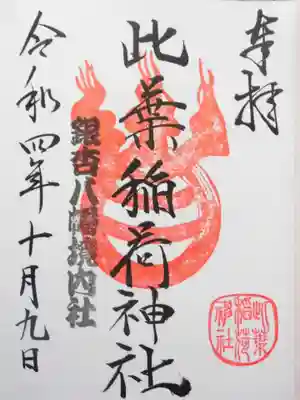 奉拝
此葉稲荷神社
銀杏八幡境内社
令和四年十月九日
此葉稲荷神社